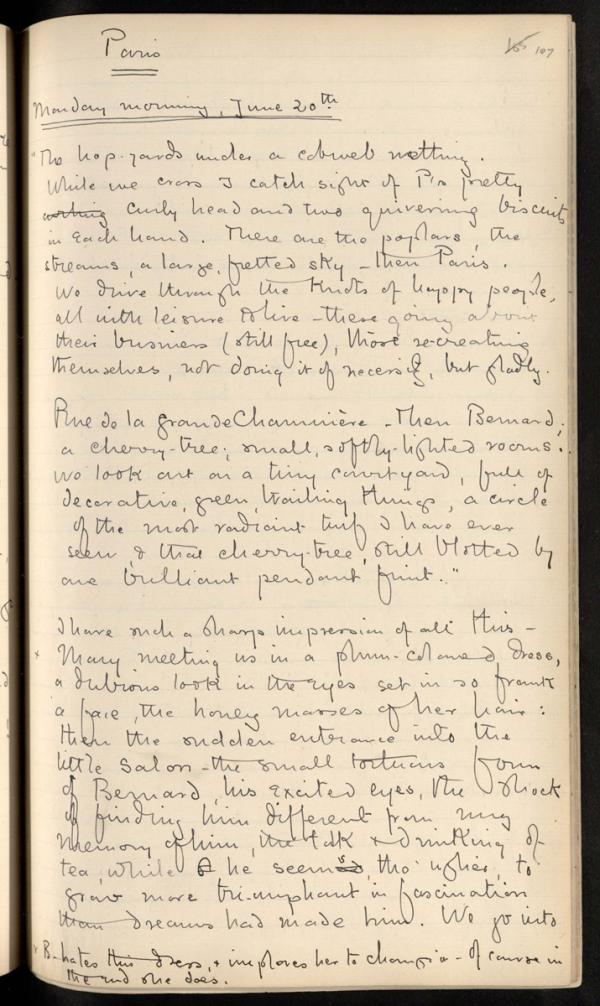 Paris
107
Monday morning, June 20th
"The hop-yards under a cobweb netting.
While we cross I catch sight of P's pretty
curly head and two quivering biscuits
in each hand. There are the poplars, the
streams, a large, fretted sky – then Paris.
We drive through the knots of happy people,
all with leisure to live – these going about
their business (still free), those re-creating
themselves, not doing it of necessity, but gladly.
Rue de la grande Chaumière – then Bernard;
a cherry-tree; small, softly-lighted rooms.
We look out on a tiny courtyard, full of
decorative, green, trailing things, a circle
of the most radiant turf I have ever
seen, & that cherry-tree, still blotted by
one brilliant pendant fruit."
I have such a sharp impression of all this –
x Mary meeting us in a plum-coloured dress,
a dubious look in the eyes set in so frank
a face, the honey masses of her hair:
then the sudden entrance into the
little salon – the small tortuous form
of Bernard, his excited eyes, the shock
of finding him different from my
memory of him, the talk & drinking of
tea, while he seems, tho' uglier, to
grow more triumphant in fascination
than dreams had made him. We go into
x B. hates this dress, & implores her to change – of course in
the end she does.